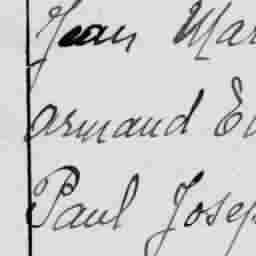 Jean Mar
Armand E
Paul Josep